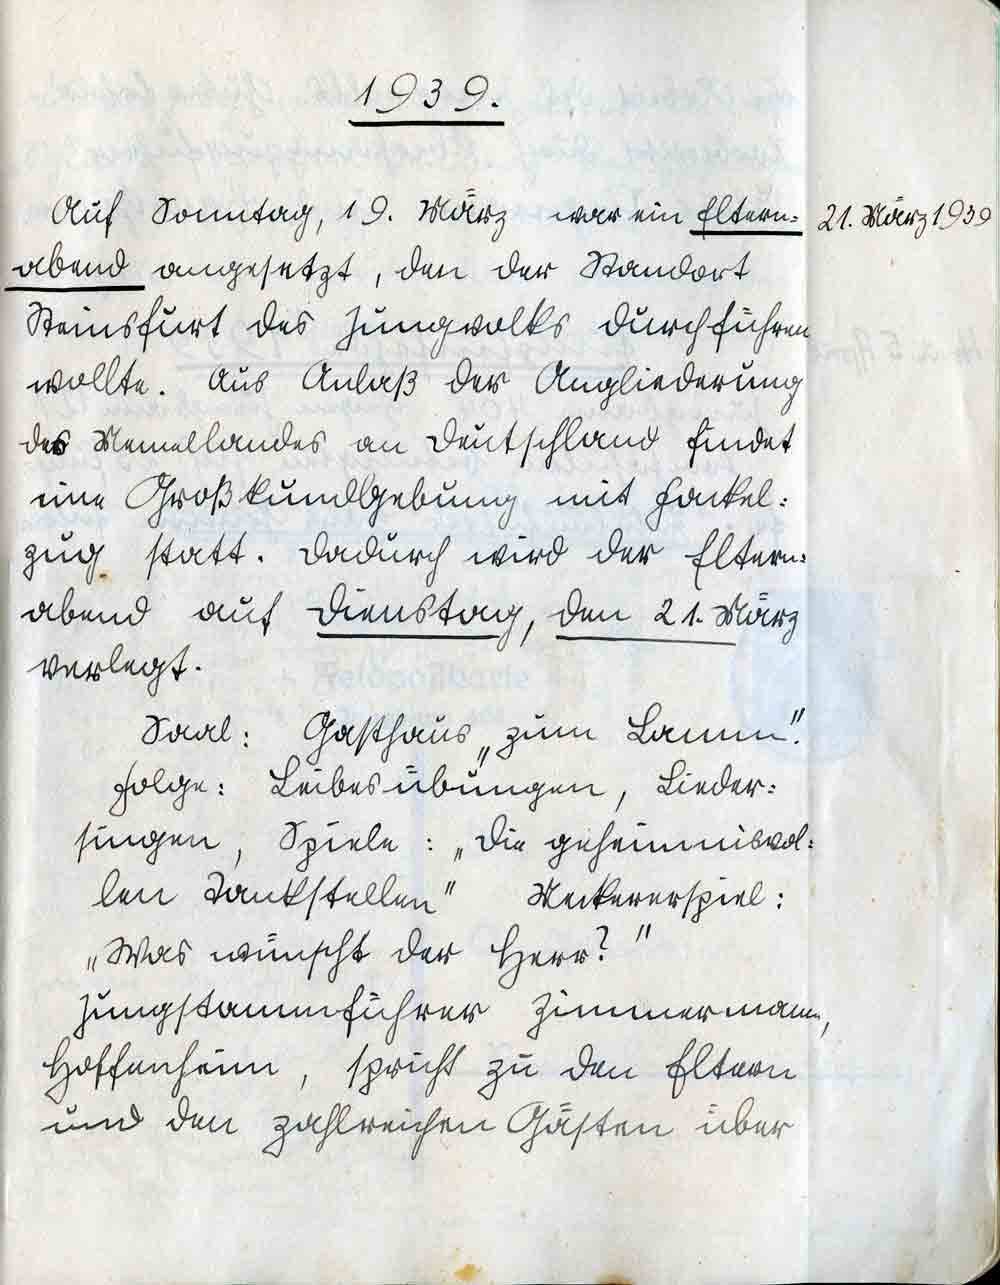 1939.
Auf Sonntag, 19. März war ein Eltern= 21. März 1939
abend angesetzt, den der Standort
Steinsfurt des Jungvolks durchführen
wollte. Aus Anlaß der Angliederung
des Memellandes an Deutschland findet
eine Großkundgebung mit Fackel=
zug statt. Dadurch wird der Eltern=
abend auf Dienstag, den 21. März
verlegt.
Saal: Gasthaus „zum Lamm".
Folge: Leibesübungen, Lieder=
singen, Spiele: „Die geheimnisvol=
len Tankstellen" Meckererspiel:
„Was wünscht der Herr?"
Jungstammführer Zimmermann,
Hoffenheim, spricht zu den Eltern
und den zahlreichen Gästen über